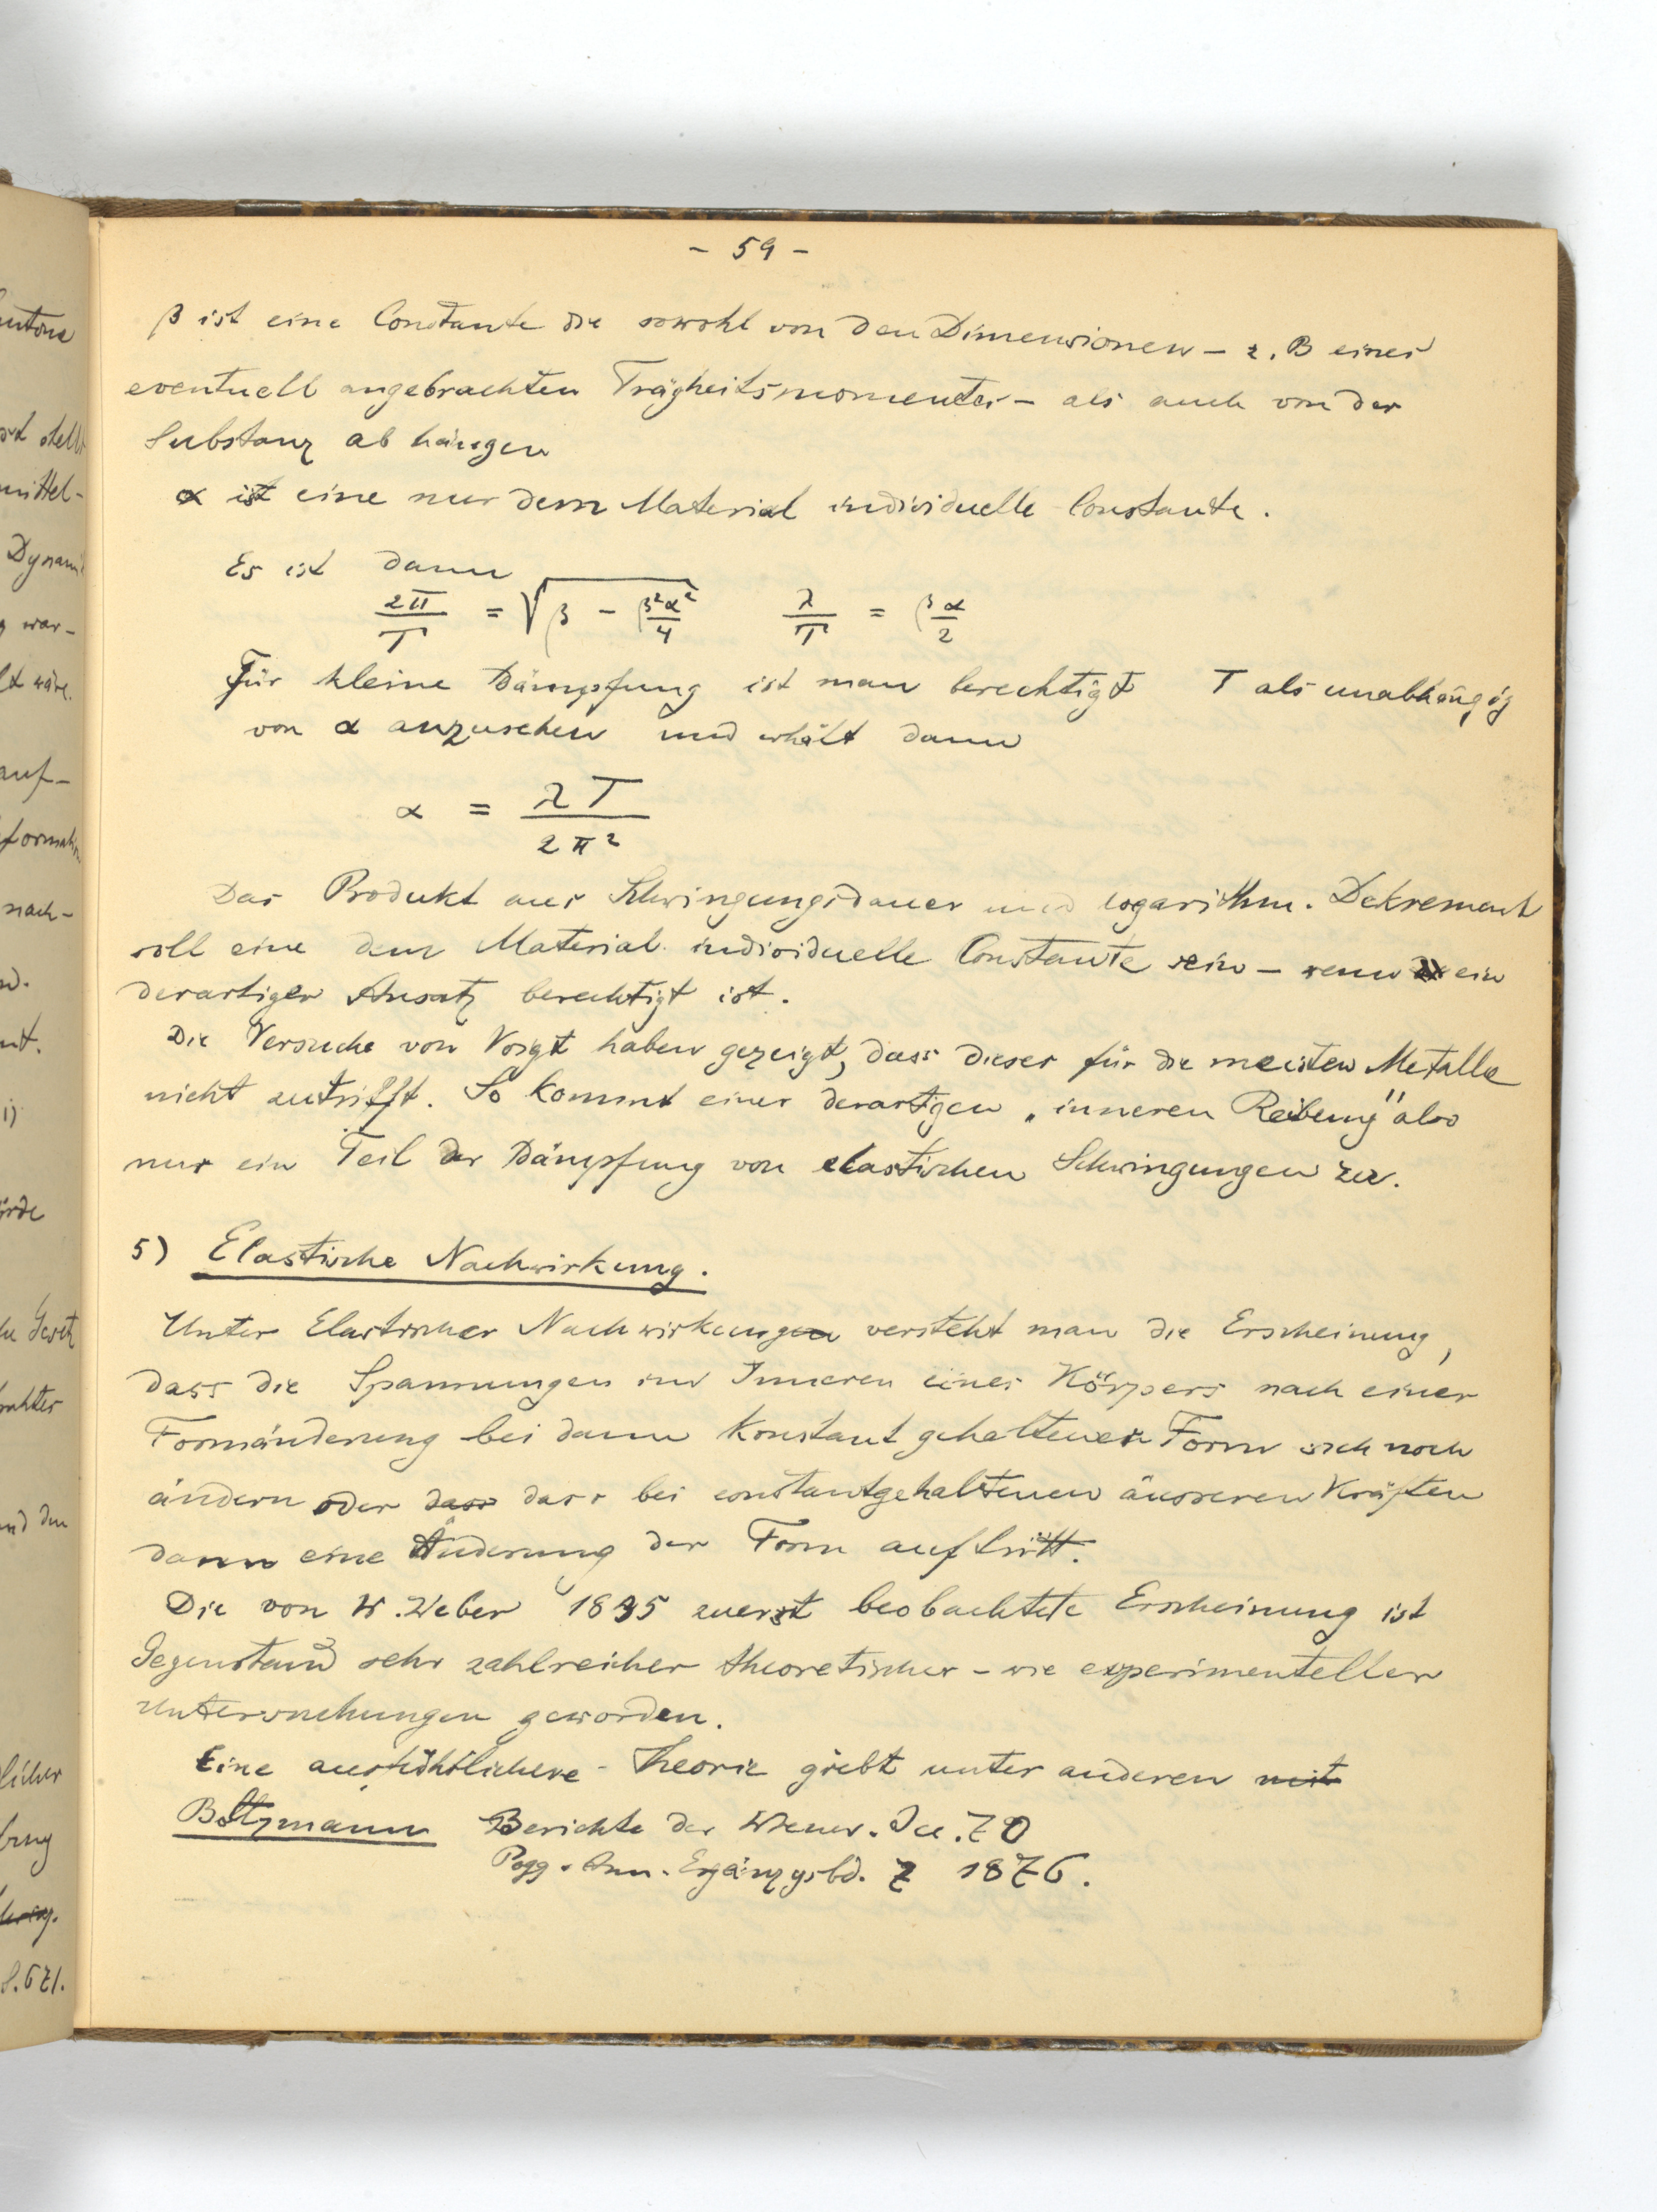 - 59 -
β ist eine Constante die sowohl von den Dimensionen - z. B eines
eventuell angebrachten Trägheitsmomentes - als auch von der
Substanz ab hängen
α ist eine nur dem Material individuelle Constante.
Es ist dann
2π/T = √(β - β²α²/4) λ/T = βα/2
Für kleine Dämpfung ist man berechtigt T als unabhängig
von α anzusehen und erhält dann
α = λT/2π²
Das Produkt aus Schwingungsdauer und logarithm. Dekrement
soll eine dem Material individuelle Constante sein - wenn ein
derartiger Ansatz berechtigt ist.
Die Versuche von Voigt haben gezeigt, dass dieses für die meisten Metalle
nicht zutrifft. So kommt einer derartgen „inneren Reibung" also
nur ein Teil der Dämpfung von elastischen Schwingungen zu.
5) Elastische Nachwirkung.
Unter Elastischer Nachwirkungen versteht man die Erscheinung,
dass die Spannungen im Inneren eines Körpers nach einer
Formänderung bei dann konstant gehaltener Form sich noch
ändern oder dass dass bei constantgehaltenen äusseren Kräften
dann eine Änderung der Form auftritt.
Die von W. Weber 1835 zuerst beobachtete Erscheinung ist
Gegenstand sehr zahlreicher theoretischer - wie experimenteller
Untersuchungen geworden.
Eine ausführlichere Theorie giebt unter anderen mit
Boltzmann Berichte der Wiener. 70
Pogg. Ann. Ergänzgsbd. 7 1876.